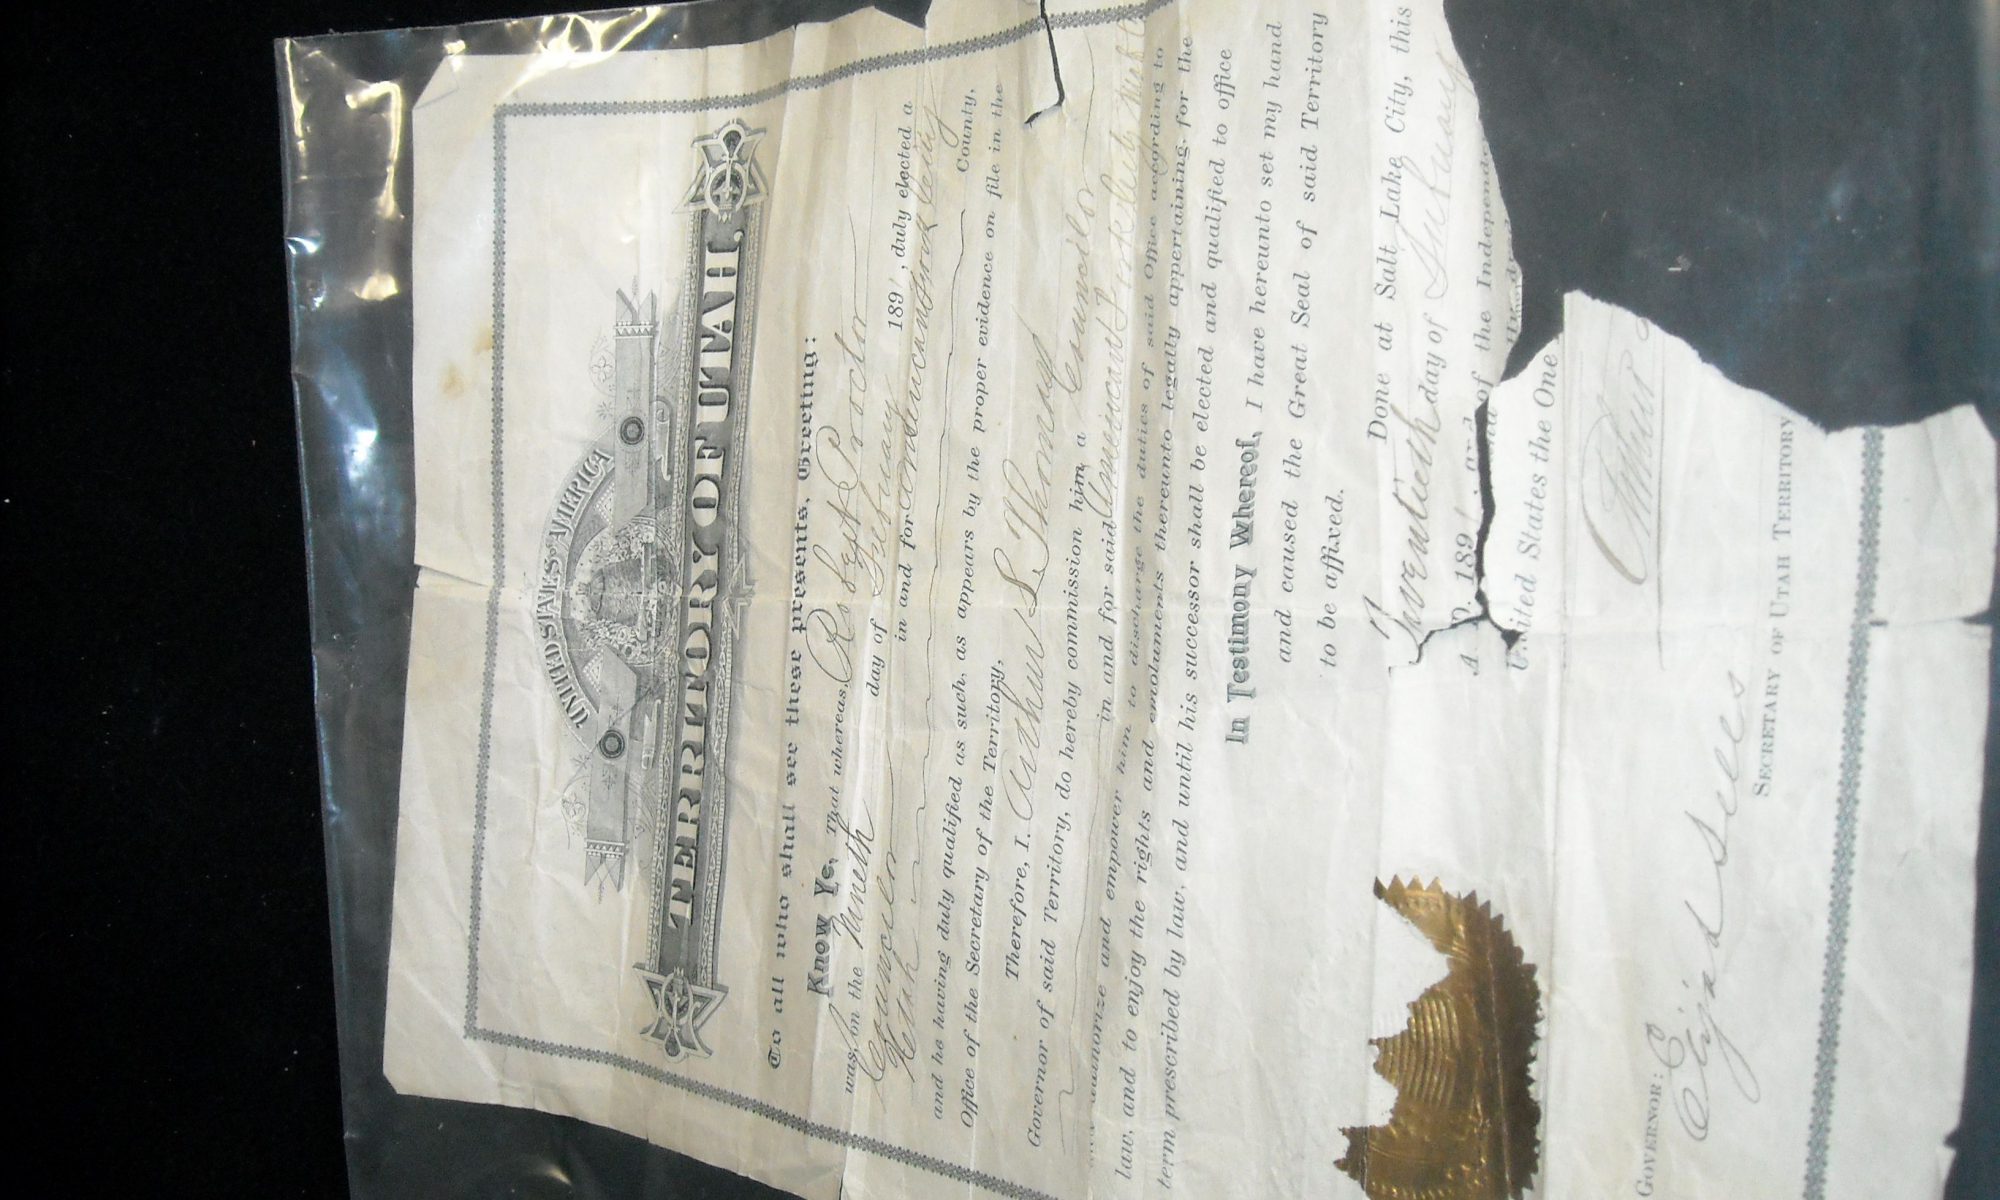 UNITED STATES OF AMERICA
TERRITORY OF UTAH.
To all who shall see these presents, Greeting:
Know Ye, That whereas, Robert Proctor
was, on the Nineth day of February 189', duly elected a
Councilor in and for American Fork City
Utah County,
and he having duly qualified as such, as appears by the proper evidence on file in the
Office of the Secretary of the Territory,
Therefore, I, Arthur L. Thomas
Governor of said Territory, do hereby commission him, a Councilor
in and for said American Fork City
authorize and empower him to discharge the duties of said Office according to
law, and to enjoy the rights and emoluments thereunto legally appertaining, for the
term prescribed by law, and until his successor shall be elected and qualified to office
In Testimony Whereof, I have hereunto set my hand
and caused the Great Seal of said Territory
to be affixed.
Done at Salt Lake City, this
Twentieth day of February
A. D. 189' and of the Independ
United States the One Hundred
Arthur
GOVERNOR:
Elijah Sells
SECRETARY OF UTAH TERRITORY